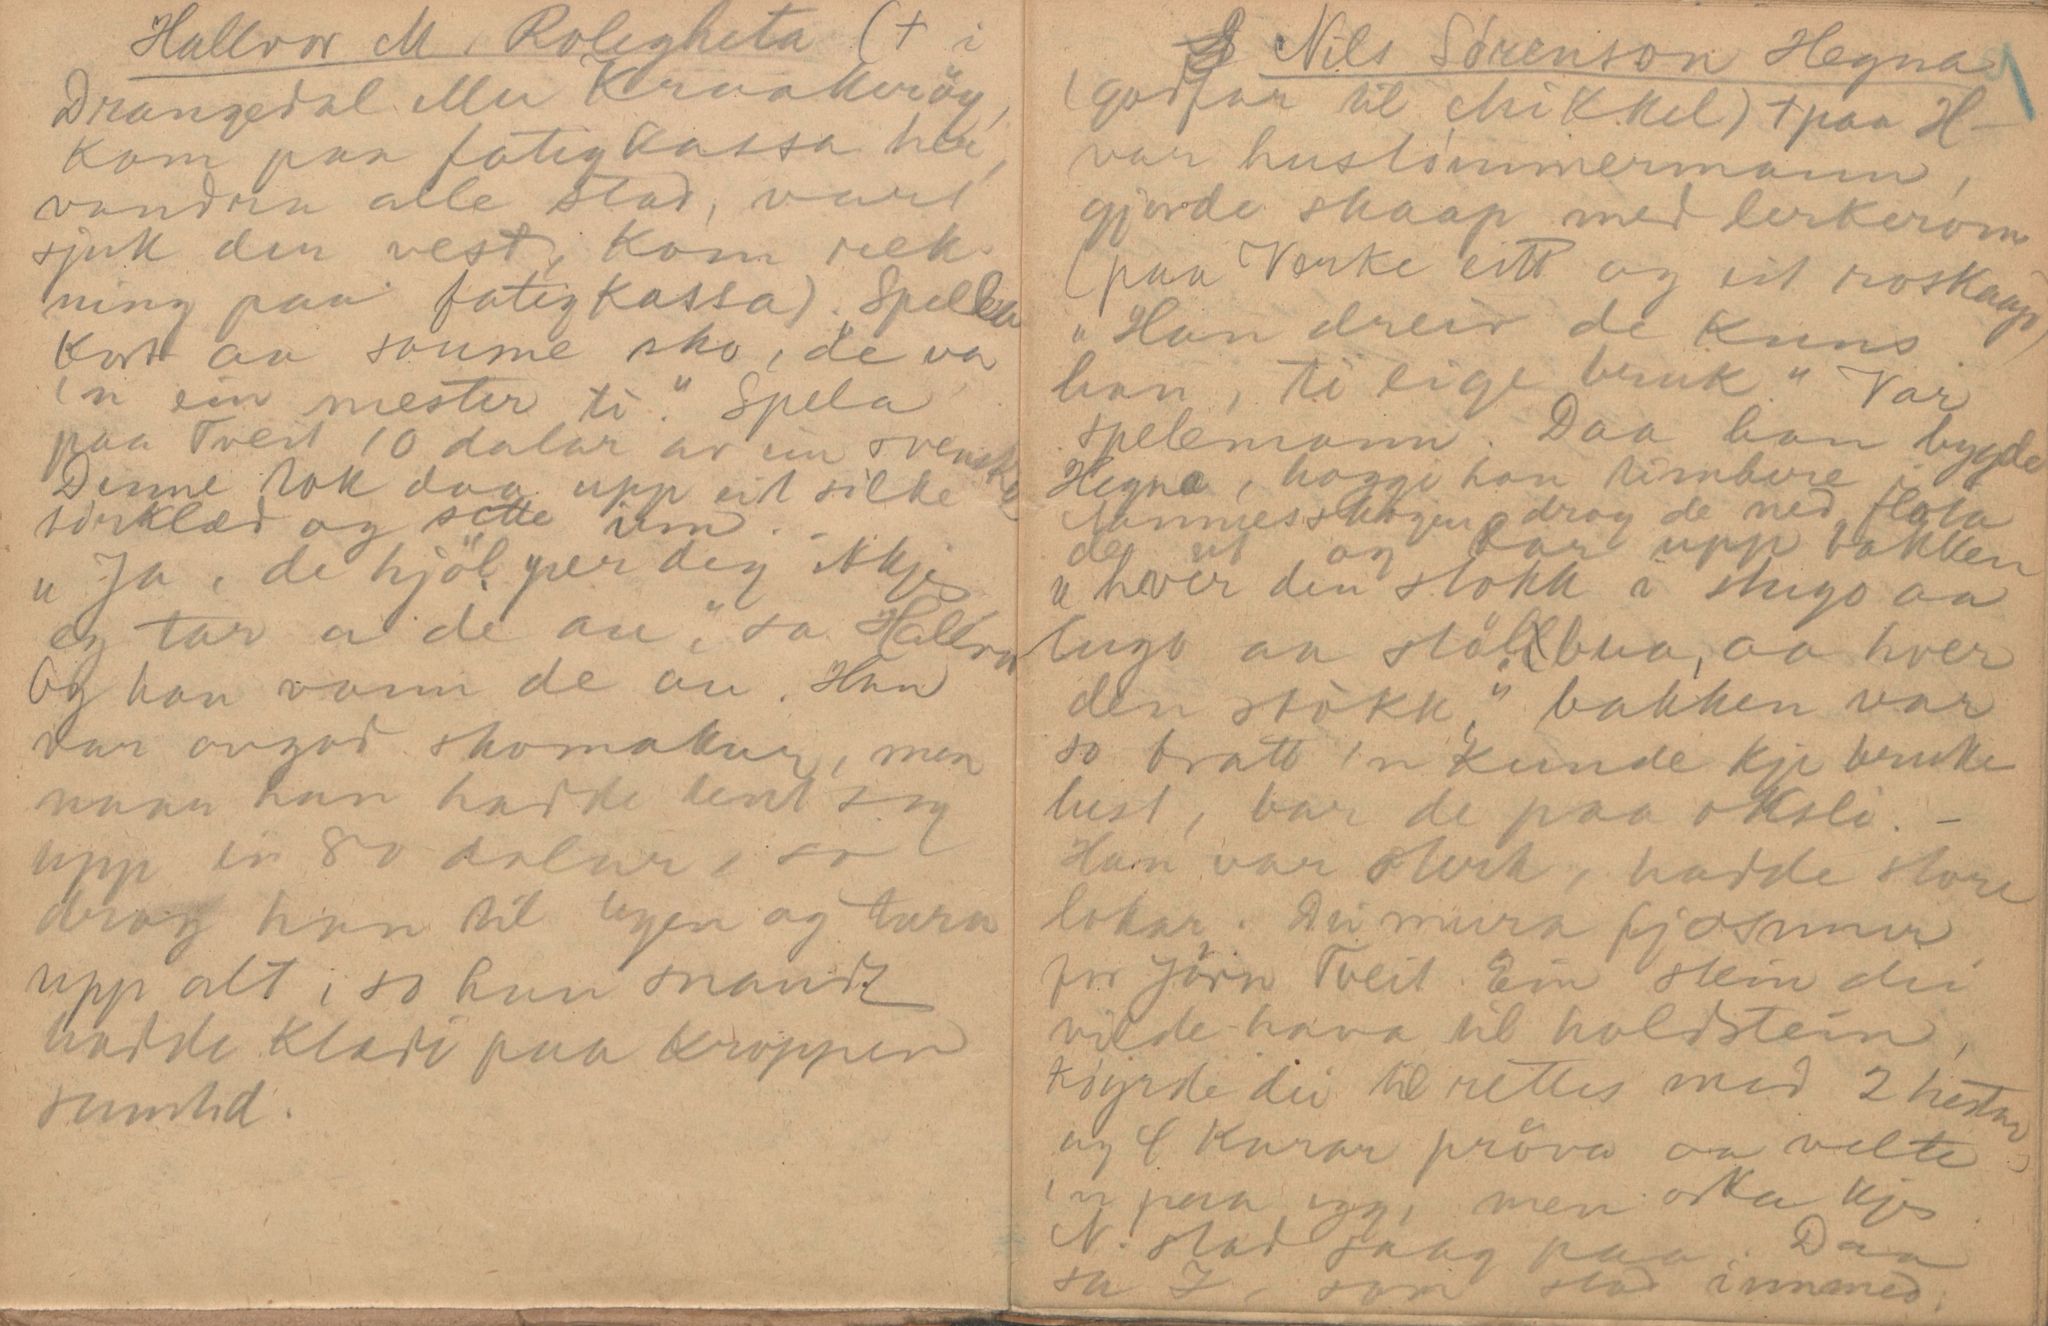 Hallvor M. Rolegheta († i
Drangedal eller Kraakerøy,
Kom paa fatigkassa her,
vandra alle stad, vart
sjuk der vest, kom rek-
ning paa fatigkassa). Spella
kort aa saume sko, "de va
'n ein mester ti." Spela
paa Tveit 10 dalar av ein svenske
Denne tok daa upp eit silke
törklæd og sette um. -
"Ja, de hjölper deg ikje
eg tar a de au," sa Hallvor
Og han vann de au. Han
var ovgod skomaker, men
naar han hadde tent seg
upp ein 80 dalar, so
drog han til byen og tura
upp alt, so han snaudt
hadde klæde paa kroppen
sumtid.
Nils Sørenson Hegna
(godfar til Mikkel) † paa H-
var hustømmermann,
gjorde skaap med lerkerom
(paa Verke eitt og eit roskaap)
"Han dreiv de kuns
han, ti eige bruk." Var
spelemann. Daa han bygde
Hegna, hogge han timbere i
skogen, drog de ned, flota
de ut og bar upp bakken
"hver den stokk i stugo aa
bugo aa stölbua, aa hver
den stokk," bakken var
so bratt 'n kunde kje bruke
hest, bar de paa oksli. -
Han var sterk, hadde store
lokar. Dei mura fjøsmur
for Jörn Tveit. Ein stein dei
vilde hava til holdstein,
köyrde dei til rettes med 2 hestar
og 4 karar pröva aa velte
'n paa egg, men orka kje.
N. stod saag paa. Daa
sa J, som stod innmed.